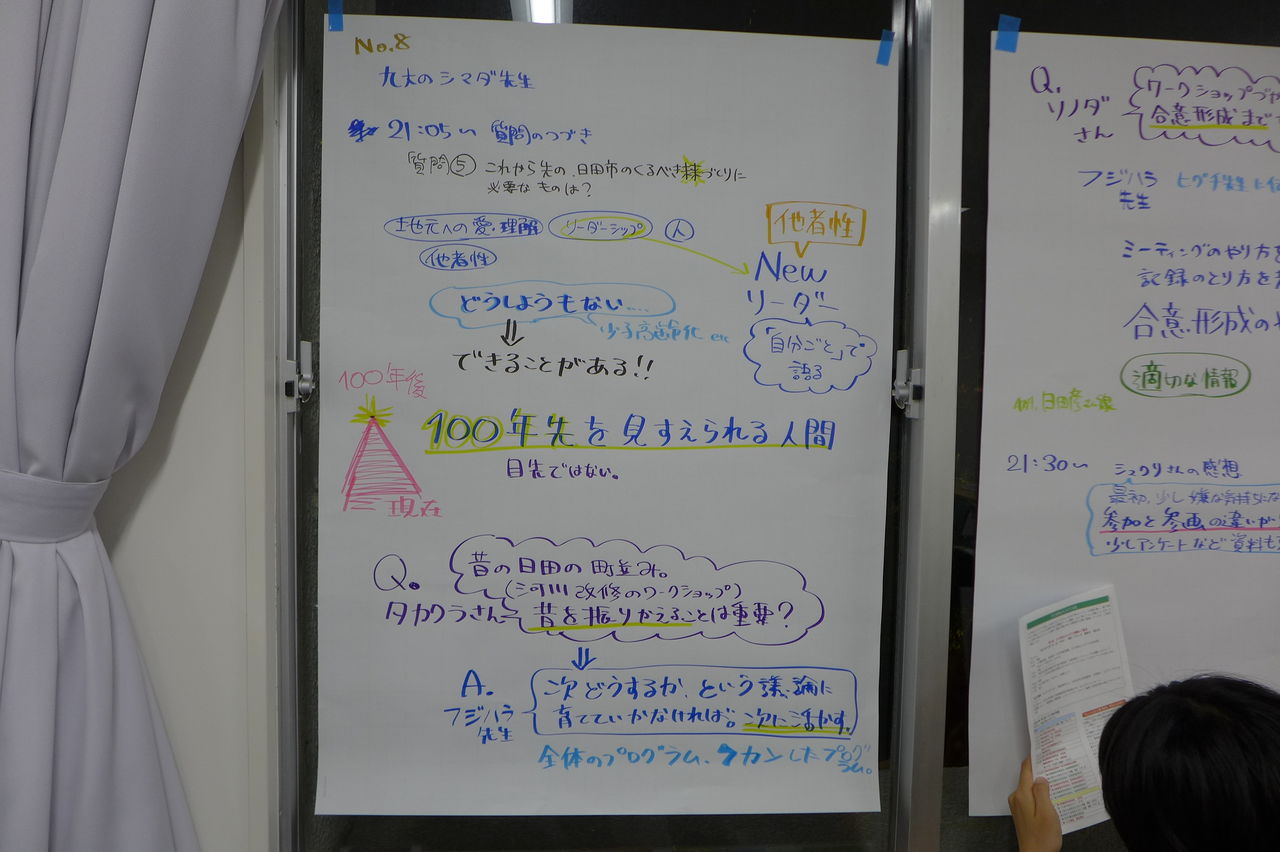 No.8
九大のシマダ先生
21:05〜 質問のつづき
質問⑤ これから先の、日田市のくるべき森づくりに
必要なものは?
地元への愛・理解 リーダーシップ 人
他者性
他者性
New
リーダー
「自分ごと」で
語る
どうしようもない....
少子高齢化 etc
⇓
できることがある!!
100年後
現在
100年先を見すえられる人間
目先ではない。
Q.
タカクラさん
昔の日田の町並み。
(三河川改修のワークショップ)
昔を振りかえることは重要?
⇓
A.
フジハラ
先生
次どうするか、という議論に
育てていかなければ。次に活かす。
全体のプログラム、
したプログ
ラム。
Q.
ソノダ
さん
ワークショップ
合意形成まで
フジハラ
先生
ヒグチ先生に
ミーティングのやり方を
記録のとり方を
合意形成の
適切な情報
例、日田
21:30〜
さんの感想
最初、少し嫌な気持ちにな
参加と参画の違いが
少しアンケートなど資料も